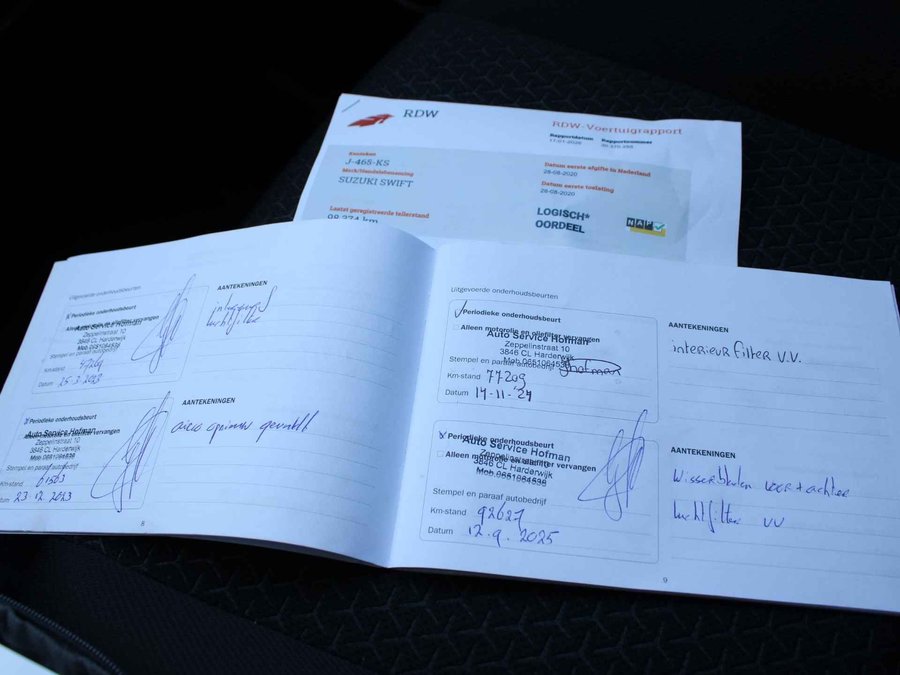 RDW
RDW-Voertuigrapport
Rapportdatum Rapportnummer
17-01-2026
Kenteken
J-468-KS
Merk/Handelsbenaming
SUZUKI SWIFT
Datum eerste afgifte in Nederland
28-08-2020
Datum eerste toelating
28-08-2020
Laatst geregistreerde tellerstand
LOGISCH*
OORDEEL
NAP
Uitgevoerde onderhoudsbeurten
Periodieke onderhoudsbeurt
Alleen motorolie en oliefilter vervangen
Auto Service Hofman
Zeppelinstraat 10
3846 CL Harderwijk
Mob. 0651064536
Stempel en paraaf autobedrijf
Km-stand
Datum 25-3-2023
AANTEKENINGEN
interieur
luchtfilter
Periodieke onderhoudsbeurt
Alleen motorolie en oliefilter vervangen
Auto Service Hofman
Zeppelinstraat 10
3846 CL Harderwijk
Mob. 0651064536
Stempel en paraaf autobedrijf
Km-stand 61563
Datum 23 12 2023
AANTEKENINGEN
airco opnieuw gevuld
8
Uitgevoerde onderhoudsbeurten
Periodieke onderhoudsbeurt
Alleen motorolie en oliefilter vervangen
Auto Service Hofman
Zeppelinstraat 10
3846 CL Harderwijk
Mob. 0651064536
Stempel en paraaf autobedrijf Jhofman
Km-stand 77209
Datum 14-11-'24
AANTEKENINGEN
interieur filter v.v.
Periodieke onderhoudsbeurt
Alleen motorolie en oliefilter vervangen
Auto Service Hofman
Zeppelinstraat 10
3846 CL Harderwijk
Mob. 0651064536
Stempel en paraaf autobedrijf
Km-stand 92627
Datum 12.9.2025
AANTEKENINGEN
wisserbladen voor + achter
luchtfilter vv
9